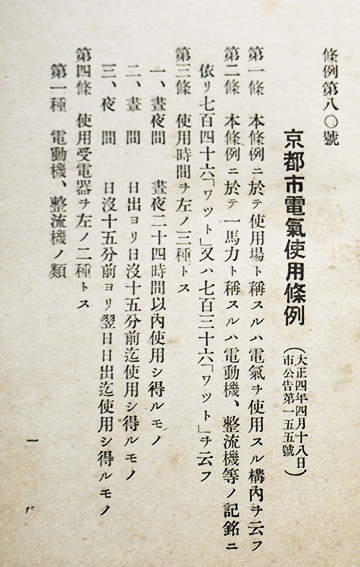 條例第八〇號
京都市電氣使用條例
(大正四年四月十八日
市公告第一五五號)
第一條 本條例ニ於テ使用場ト稱スルハ電氣ヲ使用スル構內ヲ云フ
第二條 本條例ニ於テ一馬力ト稱スルハ電動機、整流機等ノ記銘ニ
依リ七百四十六「ワツト」又ハ七百三十六「ワツト」ヲ云フ
第三條 使用時間ヲ左ノ三種トス
一、晝夜間 晝夜二十四時間以內使用シ得ルモノ
二、晝間 日出ヨリ日沒十五分前迄使用シ得ルモノ
三、夜間 日沒十五分前ヨリ翌日日出迄使用シ得ルモノ
第四條 使用受電器ヲ左ノ二種トス
第一種 電動機、整流機ノ類
一